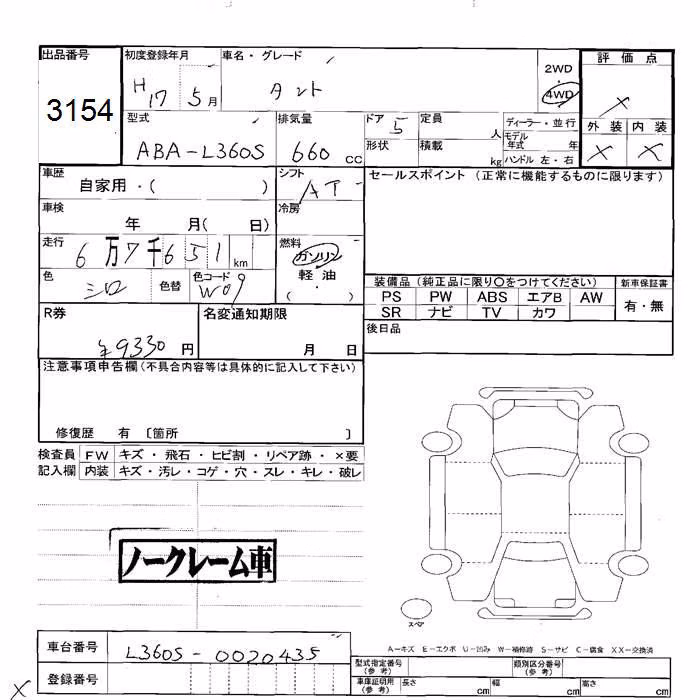 出品番号 3154
初度登録年月 H 17 5月
車名・グレード タント
2WD
4WD
評価点 ×
外装 内装
× ×
型式 ABA-L360S
排気量 660 CC
ドア 5
形状
定員 人
積載 kg
ディーラー・並行
モデル年式 年
ハンドル 左・右
車歴 自家用・( )
シフト AT
セールスポイント (正常に機能するものに限ります)
車検 年 月( 日)
冷房
走行 6万7千651km
燃料 ガソリン
軽油
( )
色 シロ 色替 色コード W09
装備品 (純正品に限り〇をつけてください) 新車保証書
PS PW ABS エアB AW 有・無
SR ナビ TV カワ
R券 ¥9330円
名変通知期限 月 日
後日品
注意事項申告欄(不具合内容等は具体的に記入して下さい)
修復歴 有 〔箇所 〕
検査員 FW キズ・飛石・ヒビ割・リペア跡・×要
記入欄 内装 キズ・汚レ・コゲ・穴・スレ・キレ・破レ
ノークレーム車
スペア
A-キズ E-エクボ U-凹み W-補修跡 S-サビ C-腐食 XX-交換済
車台番号 L360S-0020435
登録番号
型式指定番号(参考) 類別区分番号(参考)
車庫証明用(参考) 長さ cm 幅 cm 高さ cm
×